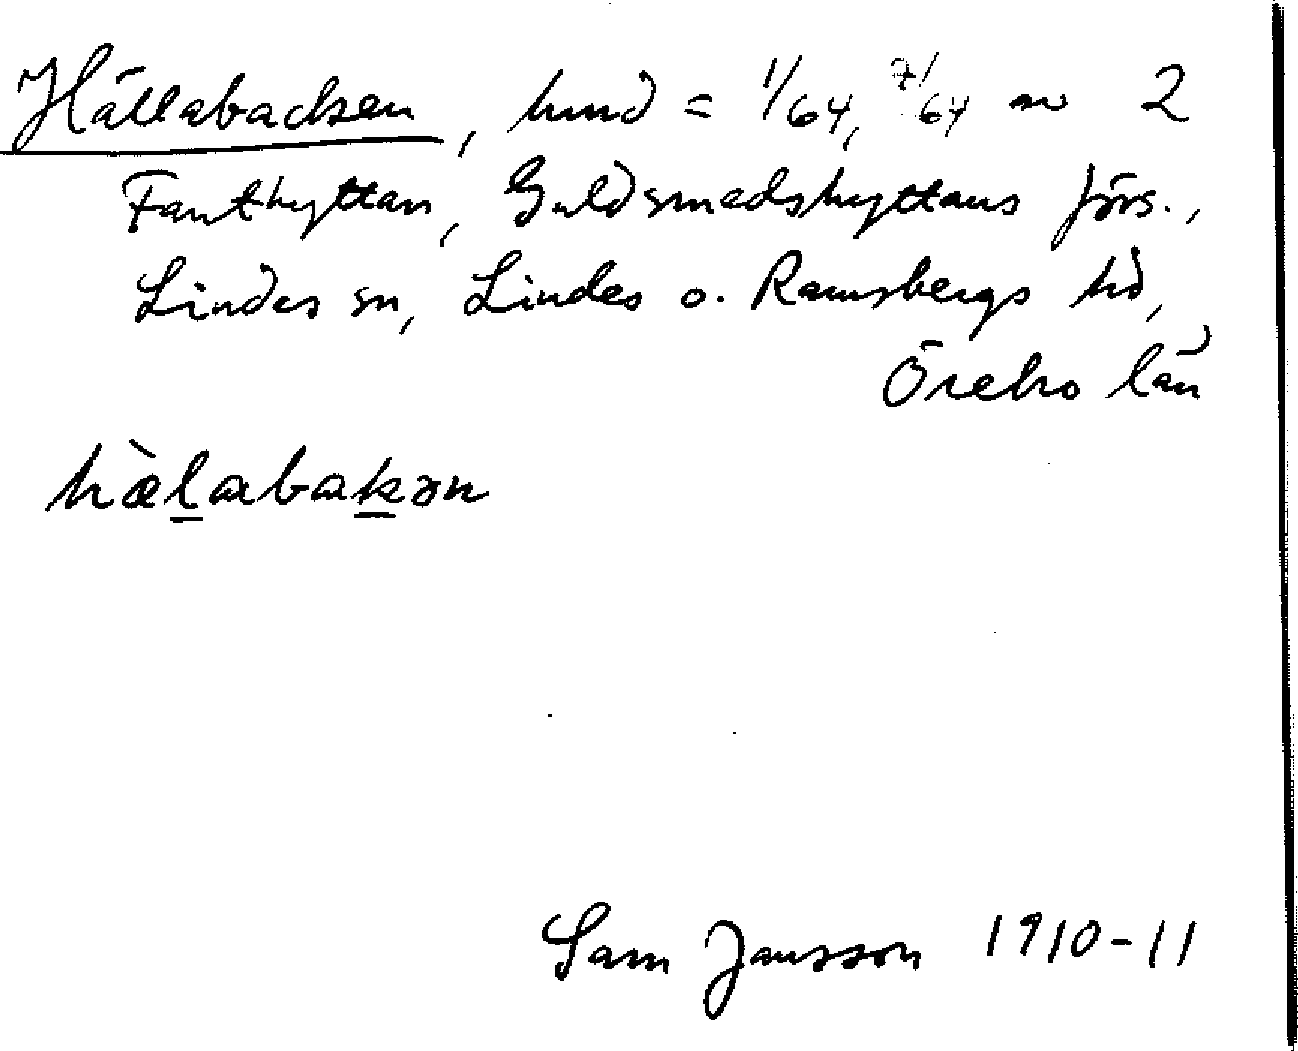 Hällabacken, hmd = 1/64, 7/64 av 2
Fanthyttan, Guldsmedshyttans förs.,
Lindes sn, Lindes o. Ramsbergs hd,
Örebro län
hὰlabakən
Sam Jansson 1910-11